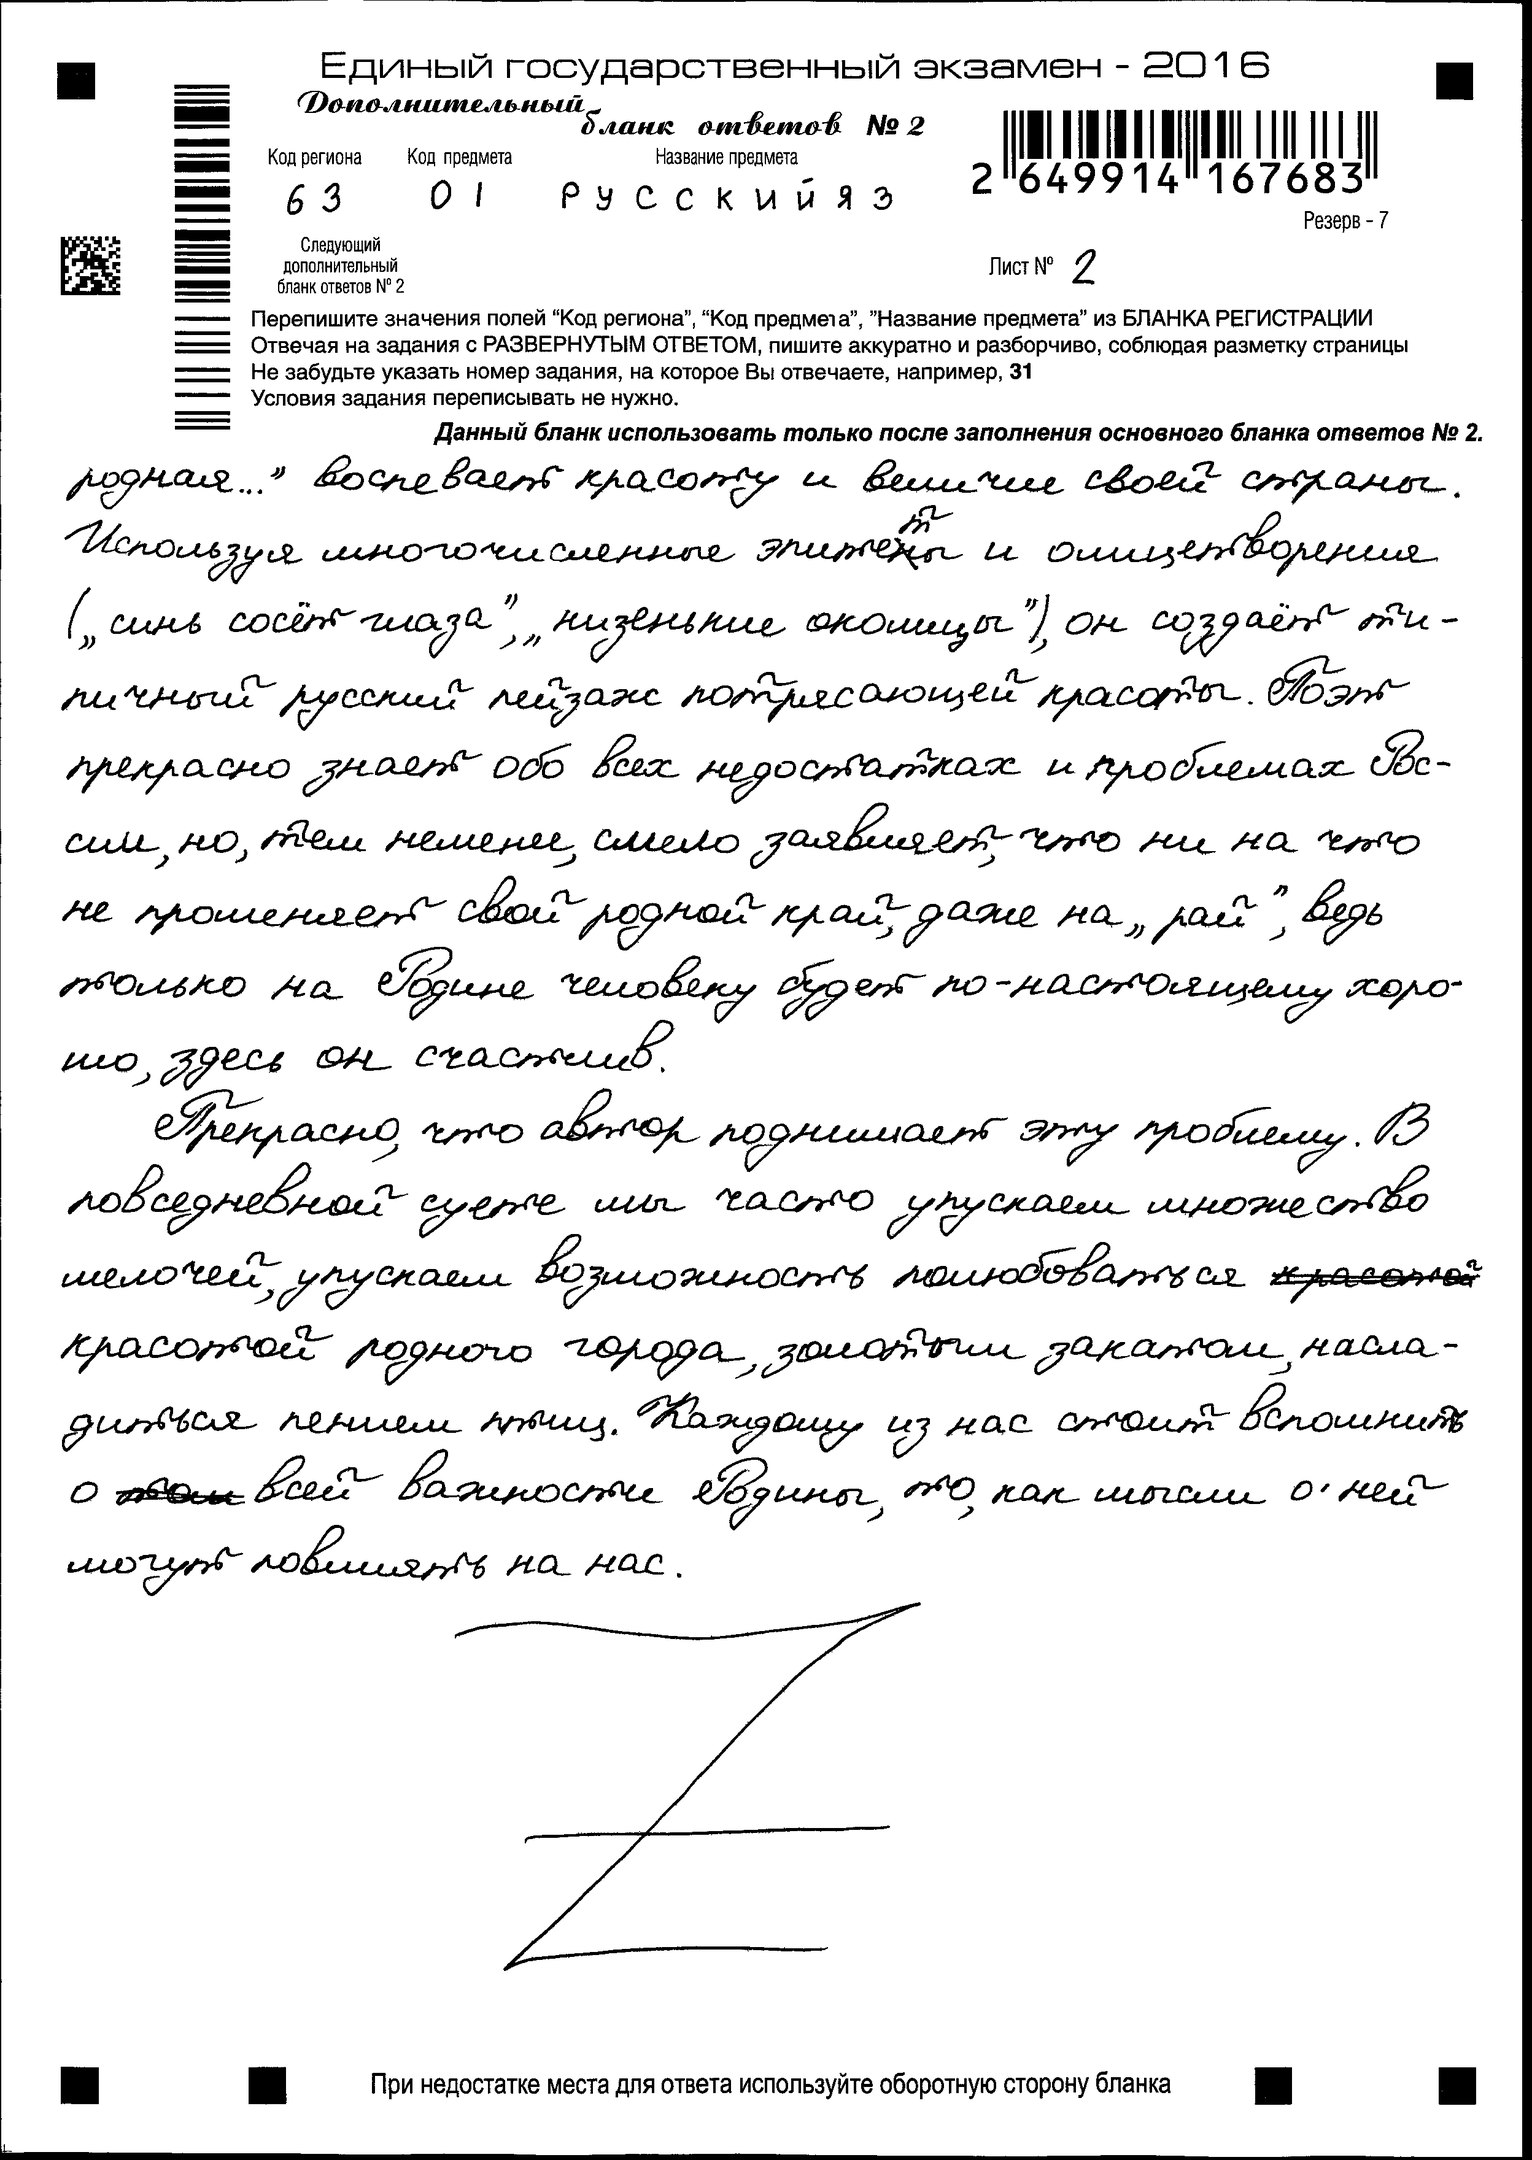 Единый государственный экзамен - 2016
Дополнительный
бланк ответов № 2
Код региона Код предмета Название предмета
63 01 РУССКИЙЯЗ
2 649914 167683
Резерв - 7
Следующий
дополнительный
бланк ответов № 2
Лист № 2
Перепишите значения полей “Код региона”, “Код предмета”, ”Название предмета” из БЛАНКА РЕГИСТРАЦИИ
Отвечая на задания с РАЗВЕРНУТЫМ ОТВЕТОМ, пишите аккуратно и разборчиво, соблюдая разметку страницы
Не забудьте указать номер задания, на которое Вы отвечаете, например, 31
Условия задания переписывать не нужно.
Данный бланк использовать только после заполнения основного бланка ответов № 2.
родная...” воспевает красоту и величие своей страны.
Используя многочисленные эпитеты и олицетворения
(„синь сосёт глаза”, „низенькие околицы”), он создаёт ти-
пичный русский пейзаж потрясающей красоты. Поэт
прекрасно знает обо всех недостатках и проблемах Рос-
сии, но, тем неменее, смело заявляет, что ни на что
не променяет свой родной край, даже на „рай”, ведь
только на Родине человеку будет по-настоящему хоро-
шо, здесь он счастлив.
Прекрасно, что автор поднимает эту проблему. В
повседневной суете мы часто упускаем множество
мелочей, упускаем возможность полюбоваться красотой
красотой родного города, золотым закатом, насла-
диться пением птиц. Каждому из нас стоит вспомнить
о том всей важности Родины, то, как мысли о ней
могут повлиять на нас.
При недостатке места для ответа используйте оборотную сторону бланка